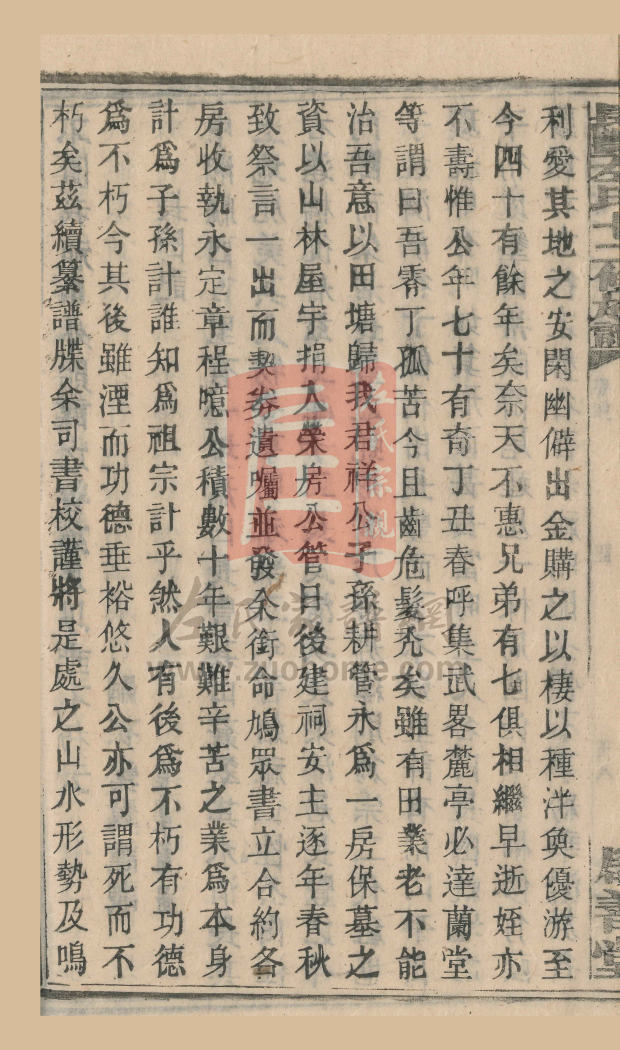 利愛其地之安閑幽僻出金購之以棲以種泮奐優游至
今四十有餘年矣奈天不惠兄弟有七俱相繼早逝姪亦
不壽惟公年七十有奇丁丑春呼集武畧麓亭必達蘭堂
等謂曰吾零丁孤苦今且齒危髮禿矣雖有田業老不能
治吾意以田塘歸我君祥公子孫耕管永爲一房保墓之
資以山林屋宇捐入榮房公管日後建祠安主逐年春秋
致祭言一出而契券遺囑並發余銜命鳩眾書立合約各
房收執永定章程噫公積數十年艱難辛苦之業爲本身
計爲子孫計誰知爲祖宗計乎然人有後爲不朽有功德
爲不朽今其後雖湮而功德垂裕悠久公亦可謂死而不
朽矣茲續纂譜牒余司書校謹將是處之山水形勢及鳴
左氏家譜網
www.zuojiome.com